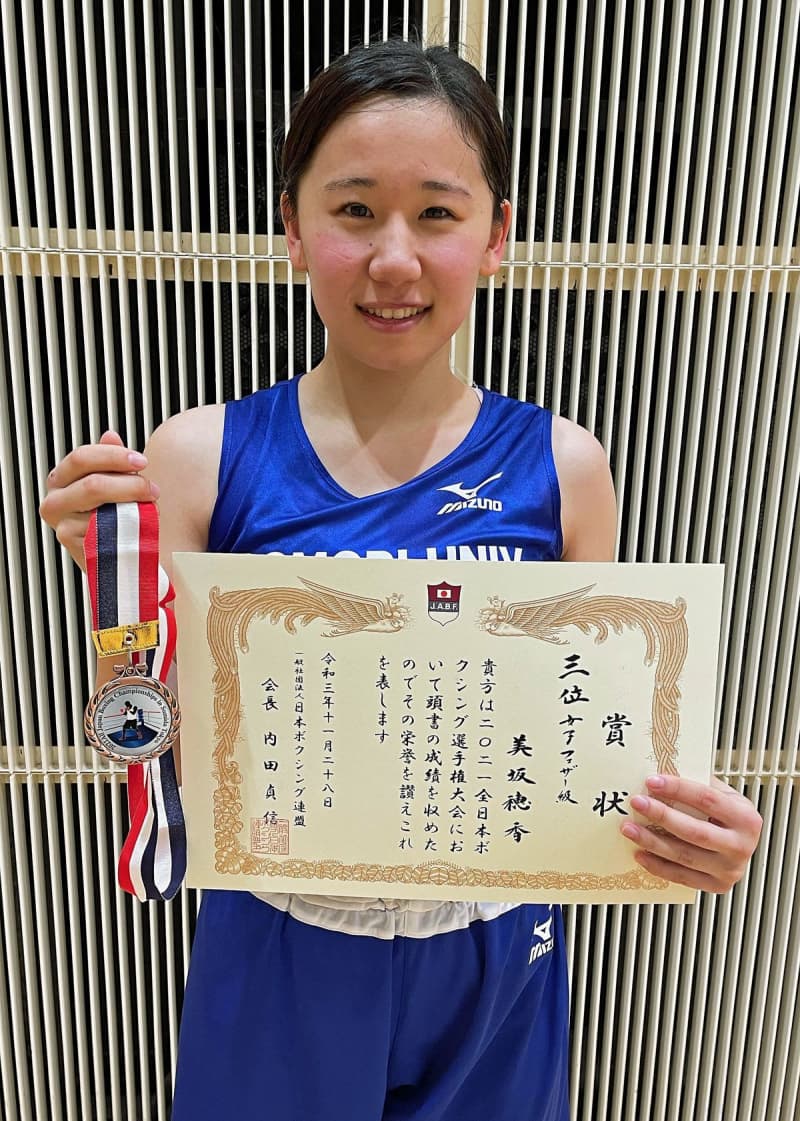 MIZUNO
OMORI UNIV
J.A.B.F.
賞状
三位 女子フェザー級
美坂穂香
貴方は二〇二一全日本ボ
クシング選手権大会にお
いて頭書の成績を収めた
のでその栄誉を讃えこれ
を表します
令和三年十一月二十八日
一般社団法人日本ボクシング連盟
会長 内田貞信
Japan Boxing Championships in Sumida
MIZUNO